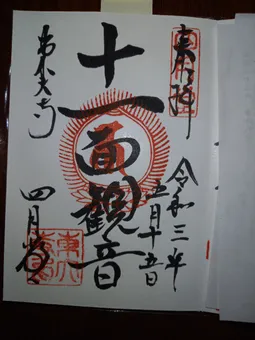 奉拝
令和三年
五月十五日
十一面観音
東大寺
四月堂